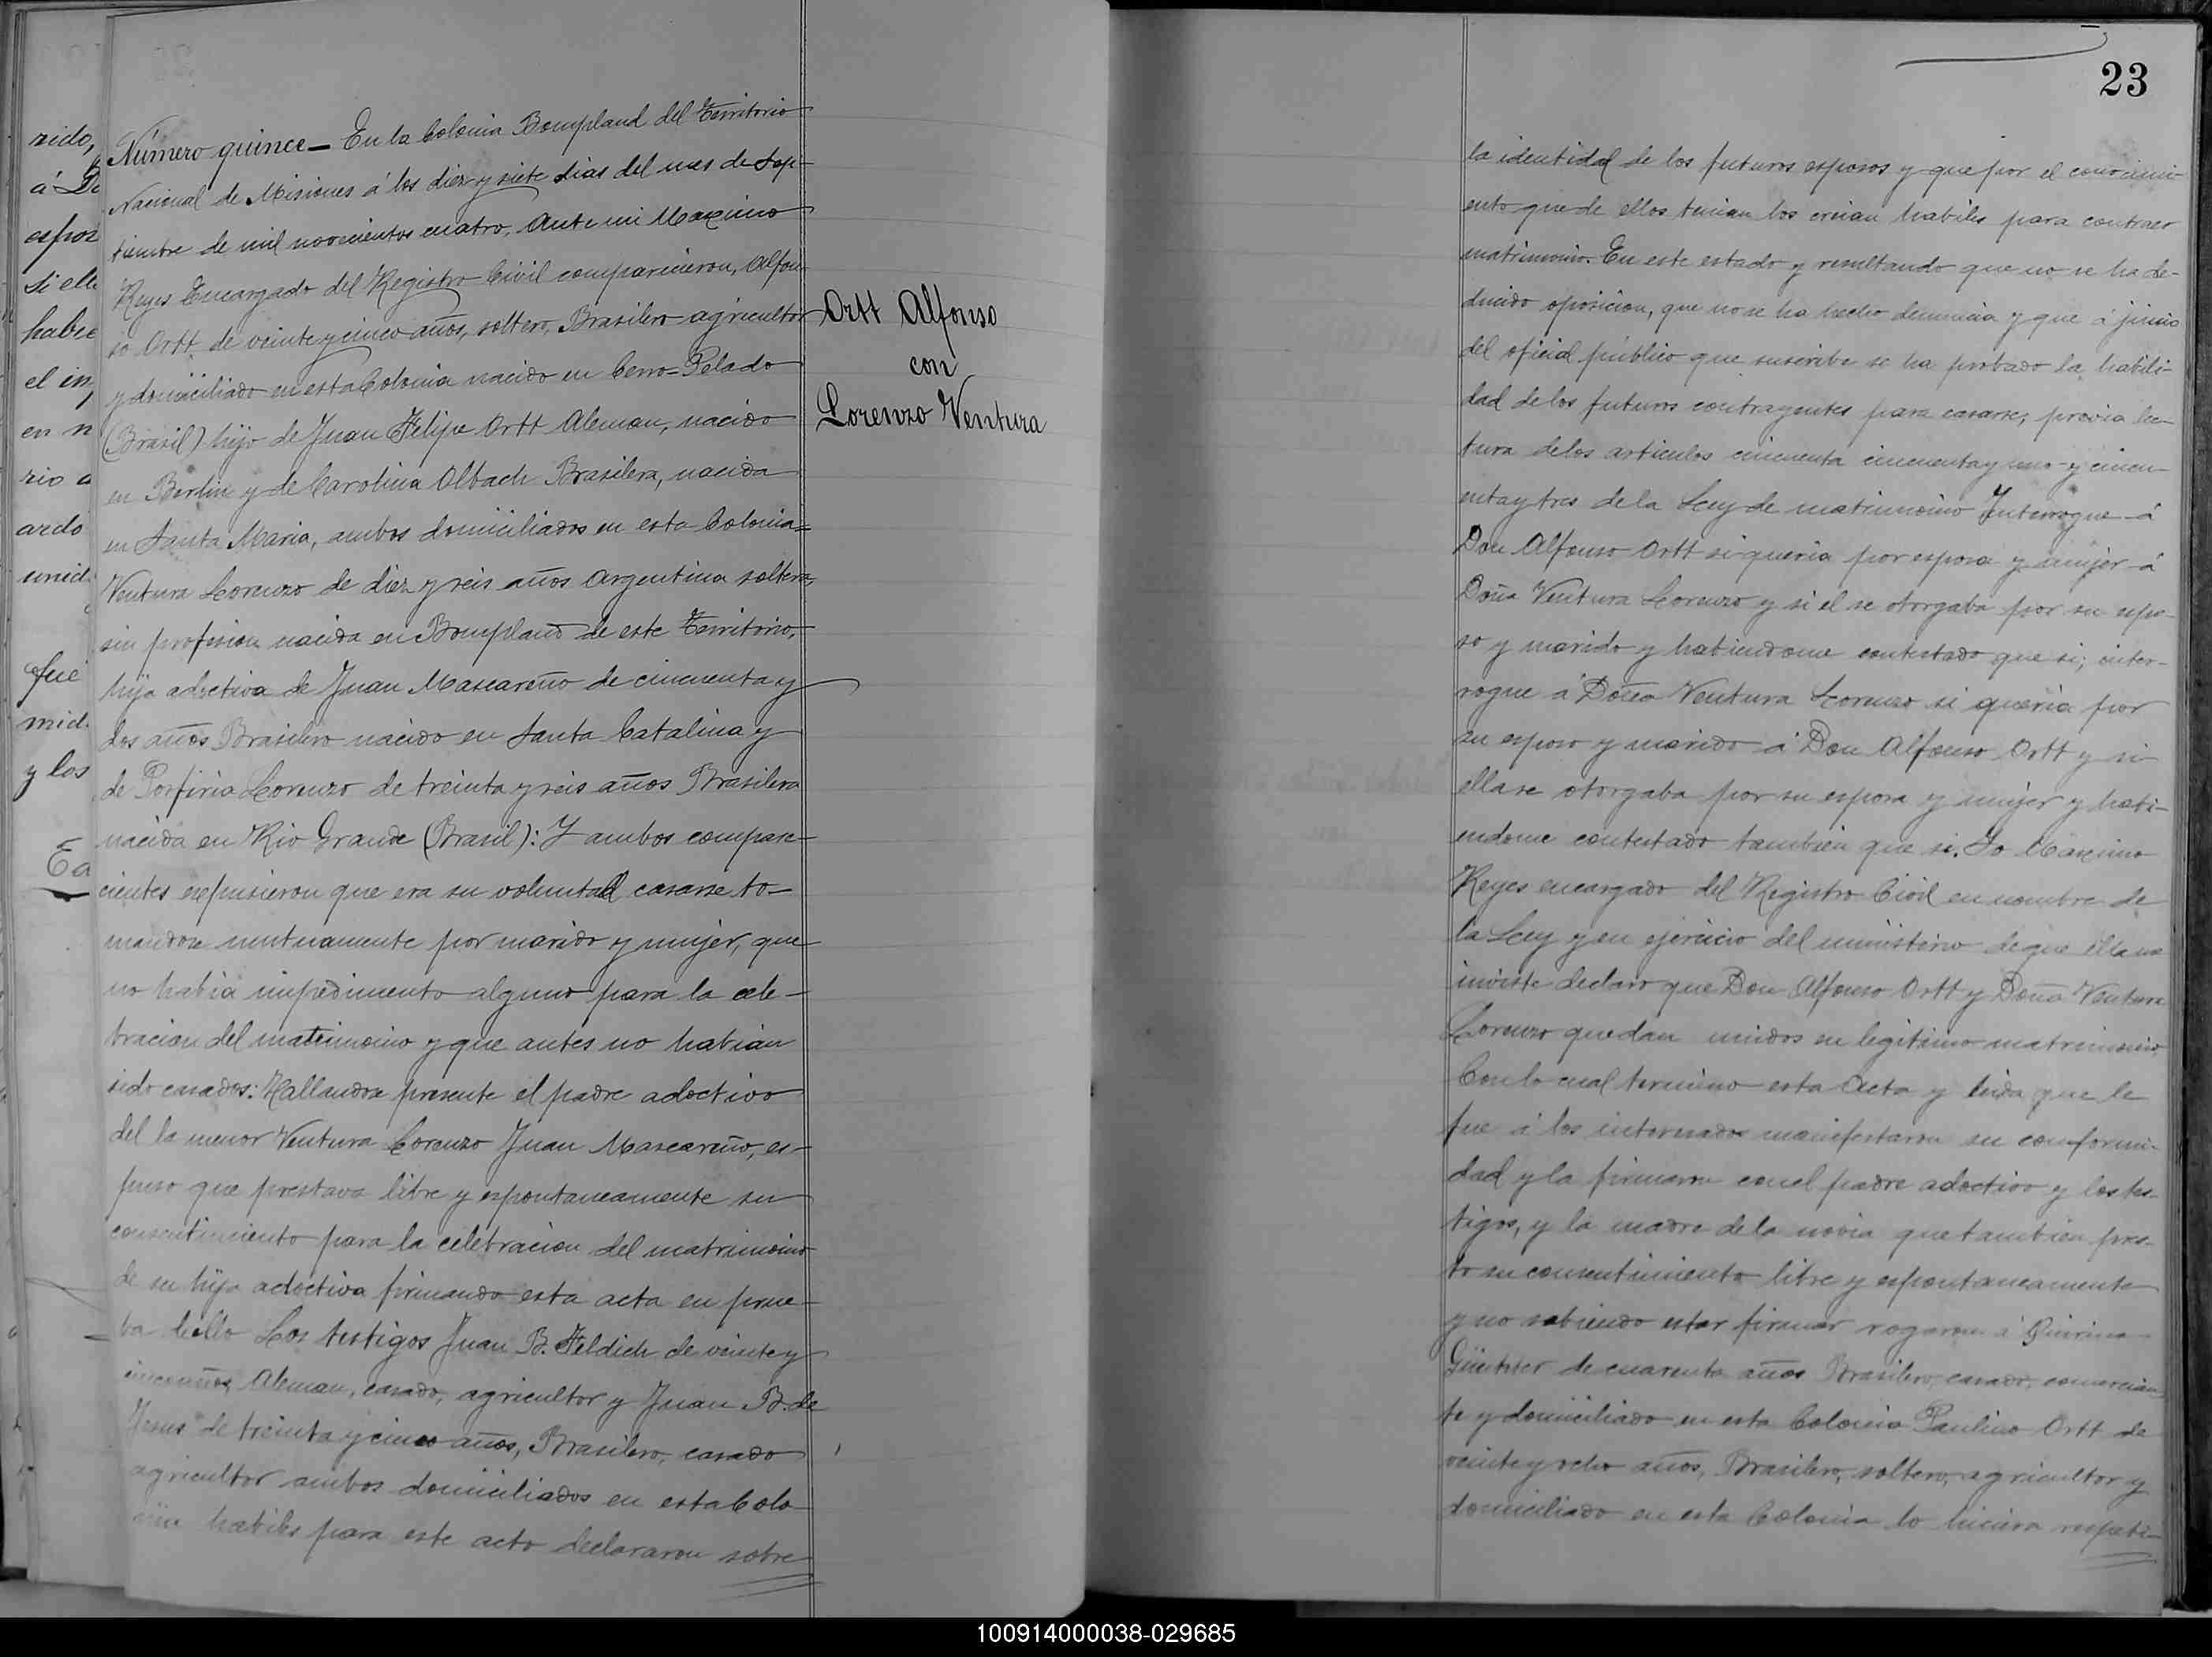 Número quince — En la Colonia Bompland del Territorio
Nacional de Misiones á los diez y siete dias del mes de Sep-
tiembre de mil novecientos cuatro, Ante mi Maximo
Reyes Encargado del Registro Civil comparecieron, Alfon
so Ortt, de veinte y cinco años, soltero, Brasilero agricultor
y domiciliado en esta Colonia nacido en Cerro-Pelado
(Brasil) hijo de Juan Felipe Ortt Aleman, nacido
en Berlin y de Carolina Olbach Brasilera, nacida
en Santa Maria, ambos domiciliados en esta Colonia=
Ventura Lorenzo de diez y seis años Argentina soltera,
sin profesion nacida en Bompland de este Territorio,
hija adoctiva de Juan Mascareño de cincuenta y
dos años Brasilero nacido en Santa Catalina y
de Porfiria Lorenzo de treinta y seis años Brasilera
nacida en Rio Grande (Brasil): Y ambos compare-
cientes expusieron que era su voluntad casarse to-
mandose mutuamente por marido y mujer, que
no habia impedimento alguno para la cele-
bracion del matrimonio y que antes no habian
sido casados: Hallandose presente el padre adoctivo
del la menor Ventura Lorenzo Juan Mascareño, es-
puso que prestava libre y espontaneamente su
consentimiento para la celebracion del matrimonio
de su hija adoctiva firmando esta acta en prue-
ba dello Los testigos Juan B. Feldich de veinte y
cinco años, Aleman, casado, agricultor y Juan B. de
Jesus de treinta y cinco años, Brasilero, casado
agricultor ambos domiciliados en esta Colo
nia habiles para este acto declararon sobre
Ortt Alfonso
con
Lorenzo Ventura
rido,
á D
espos
si ell
habie
el in
en n
rio a
ardo
unid
fue
mid.
y los
Ea
23
la identidad de los futuros esposos y que por el conocimi-
ento que de ellos tenian los creian habiles para contraer
matrimonio. En este estado y resultando que no se ha de-
ducido oposicion, que no se ha hecho denuncia y que á juicio
del oficial público que suscribe se ha probado la habili-
dad de los futuros contrayentes para casarse, previa lec-
tura de los articulos cincuenta cincuenta y uno y cincu-
enta y tres de la Ley de matrimonio Interrogue á
Don Alfonso Ortt si queria por esposa y mujer á
Doña Ventura Lorenzo y si el se otorgaba por su espo-
so y marido y habiendome contestado que si; inter-
rogue á Doña Ventura Lorenzo si queria por
su esposo y marido á Don Alfonso Ortt y si
ella se otorgaba por su esposa y mujer y habi-
endome contestado tambien que si. Yo Maximo
Reyes encargado del Registro Civil en nombre de
la Ley y en ejercicio del ministerio de que ella me
inviste declaro que Don Alfonso Ortt y Doña Ventura
Lorenzo quedan unidos en legitimo matrimonio,
Con lo cual termino esta Acta y leida que le
fue á los interesados manifestaron su conformi-
dad y la firmaron con el padre adoctivo y los tes-
tigos, y la madre de la novia que tambien pres-
to su consentimiento libre y espontaneamente
y no sabiendo estar firmar rogaron á Quirino
de cuarenta años Brasilero, casado, comercian
te y domiciliado en esta Colonia Paulino Ortt de
veinte y ocho años, Brasilero, soltero, agricultor y
domiciliado en esta Colonia lo hiciera respeti-
100914000038-029685